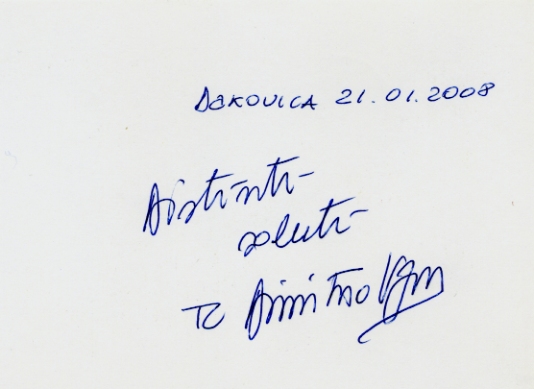 ĐAKOVICA 21.01.2008
Distinti
saluti
Dimitro